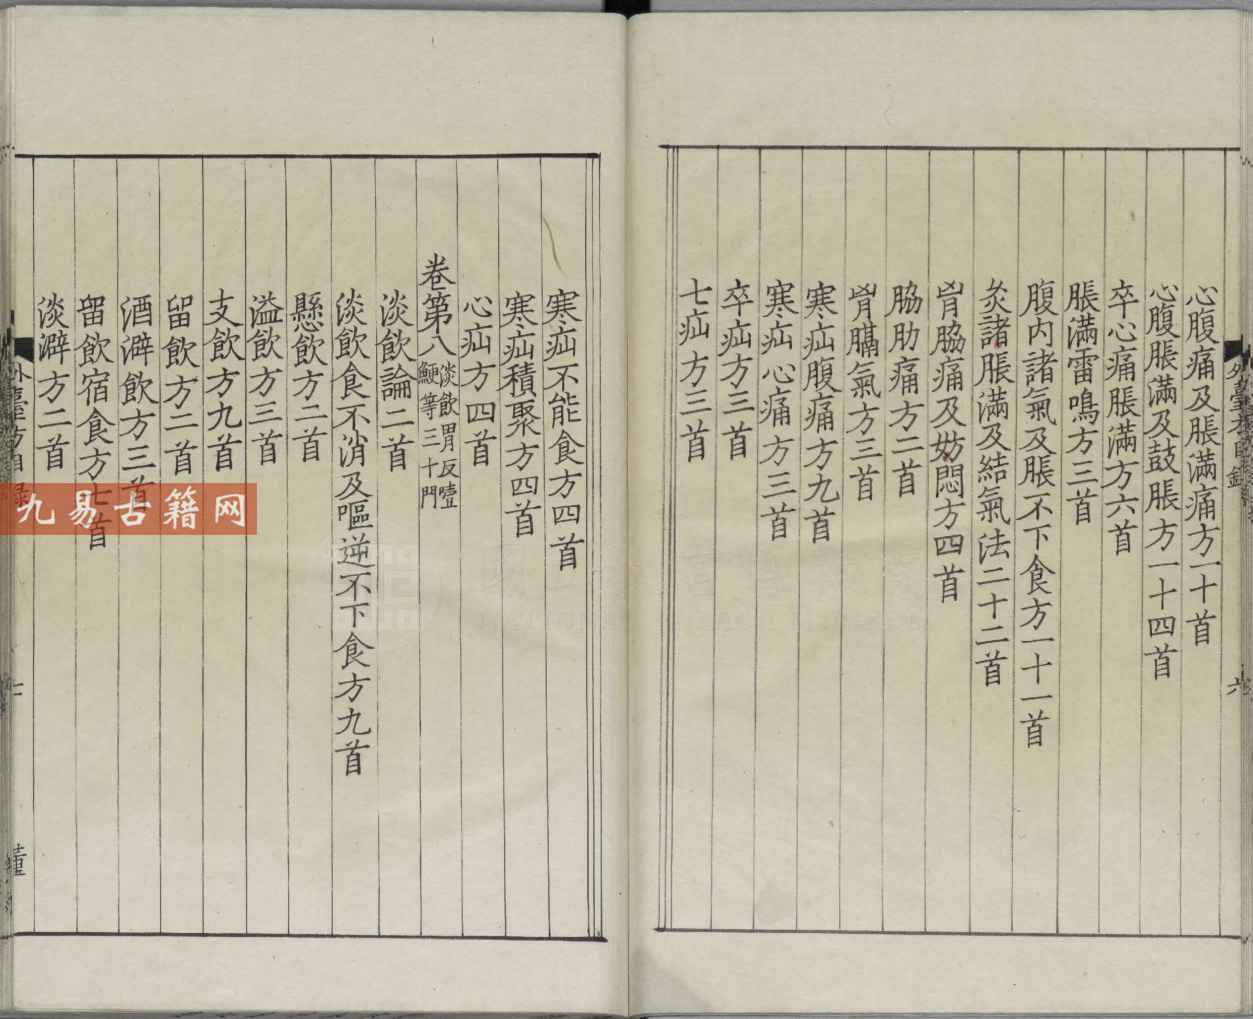 心腹痛及脹滿痛方一十首
心腹脹滿及鼓脹方一十四首
卒心痛脹滿方六首
脹滿雷鳴方三首
腹內諸氣及脹不下食方一十一首
灸諸脹滿及結氣法二十二首
胷脇痛及妨悶方四首
脇肋痛方二首
胷膈氣方三首
寒疝腹痛方九首
寒疝心痛方三首
卒疝方三首
七疝方三首
六
寒疝不能食方四首
寒疝積聚方四首
心疝方四首
卷第八淡飲胃反噎鯁等三十門
淡飲論二首
淡飲食不消及嘔逆不下食方九首
懸飲方二首
溢飲方三首
支飲方九首
留飲方二首
酒澼飲方三首
留飲宿食方七首
淡澼方二首
外臺方目録
七
董
九易古籍网